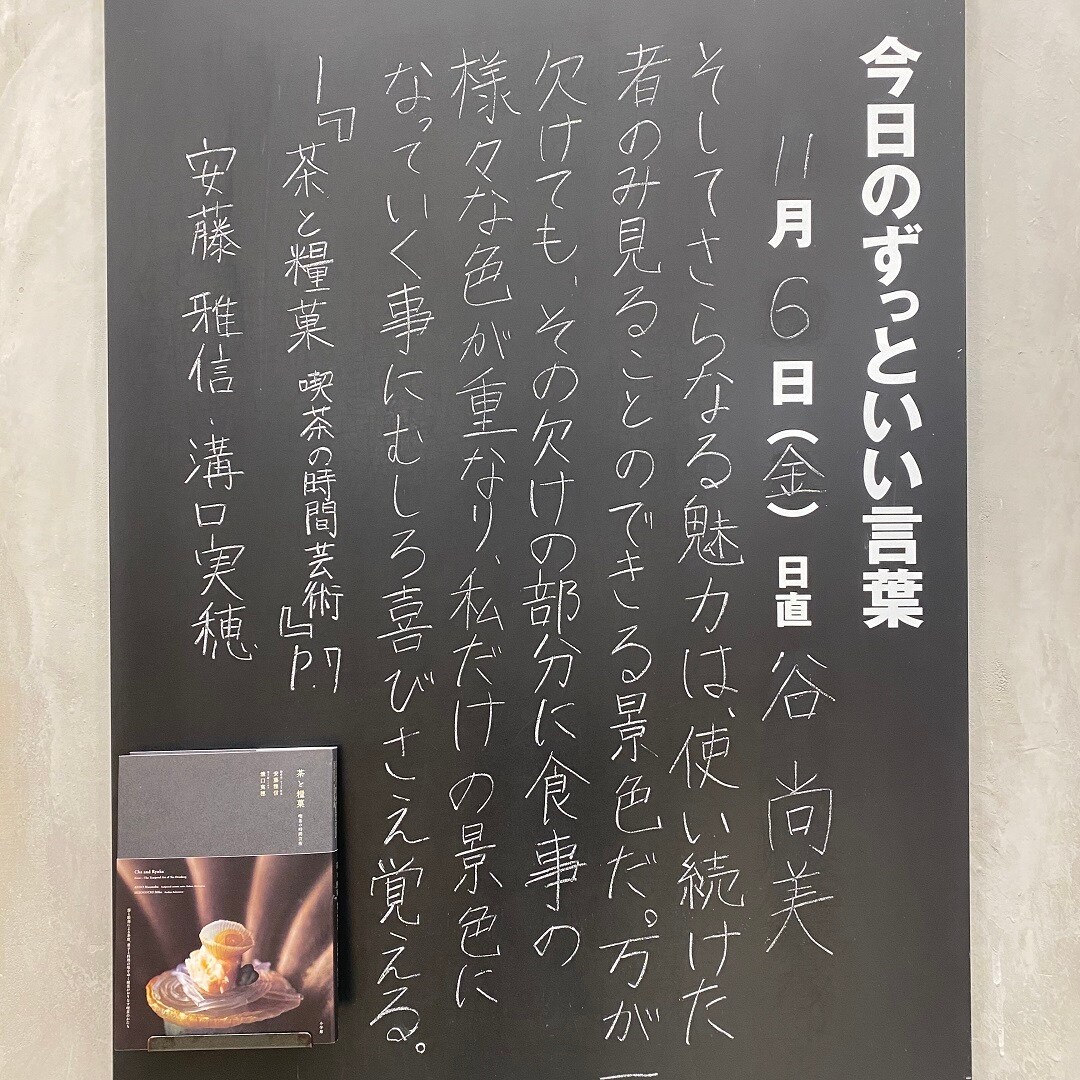 今日のずっといい言葉
11月6日(金)日直 谷 尚美
そしてさらなる魅力は、使い続けた
者のみ見ることのできる景色だ。万が一
欠けても、その欠けの部分に食事の
様々な色が重なり、私だけの景色に
なっていく事にむしろ喜びさえ覚える。
ー『茶と糧菓 喫茶の時間芸術』P.7
安藤 雅信・溝口実穂
茶と糧菓 喫茶の時間芸術
安藤雅信
溝口実穂
Cha and Ryoka
小学館